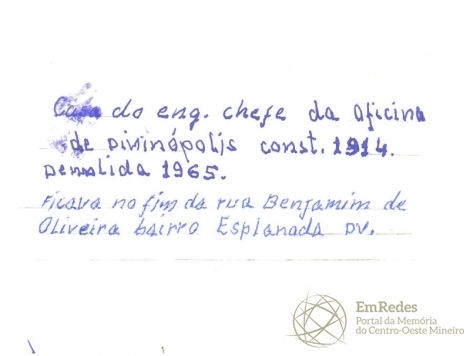 Casa do eng. chefe da oficina
de Divinópolis const. 1914.
Demolida 1965.
Ficava no fim da rua Benjamim de
Oliveira bairro Esplanada DV.
EmRedes
Portal da Memória
do Centro-Oeste Mineiro